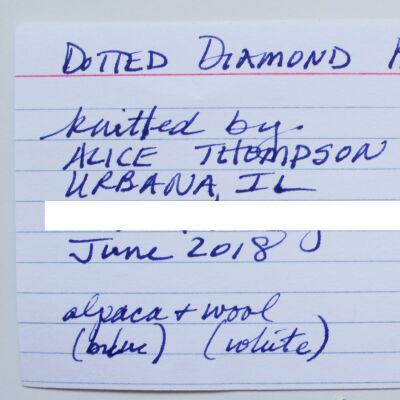 DOTTED DIAMOND
knitted by:
ALICE THOMPSON
URBANA, IL
June 2018
alpaca + wool
(blue) (white)